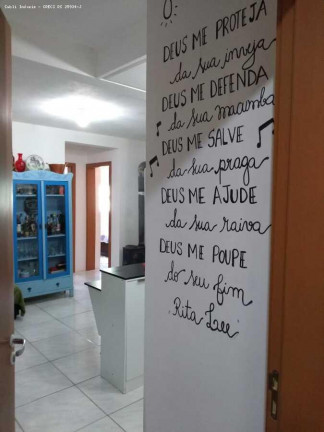 DEUS ME PROTEJA
da sua inveja
DEUS ME DEFENDA
da sua macumba
DEUS ME SALVE
da sua praga
DEUS ME AJUDE
da sua raiva
DEUS ME POUPE
do seu fim
Rita Lee